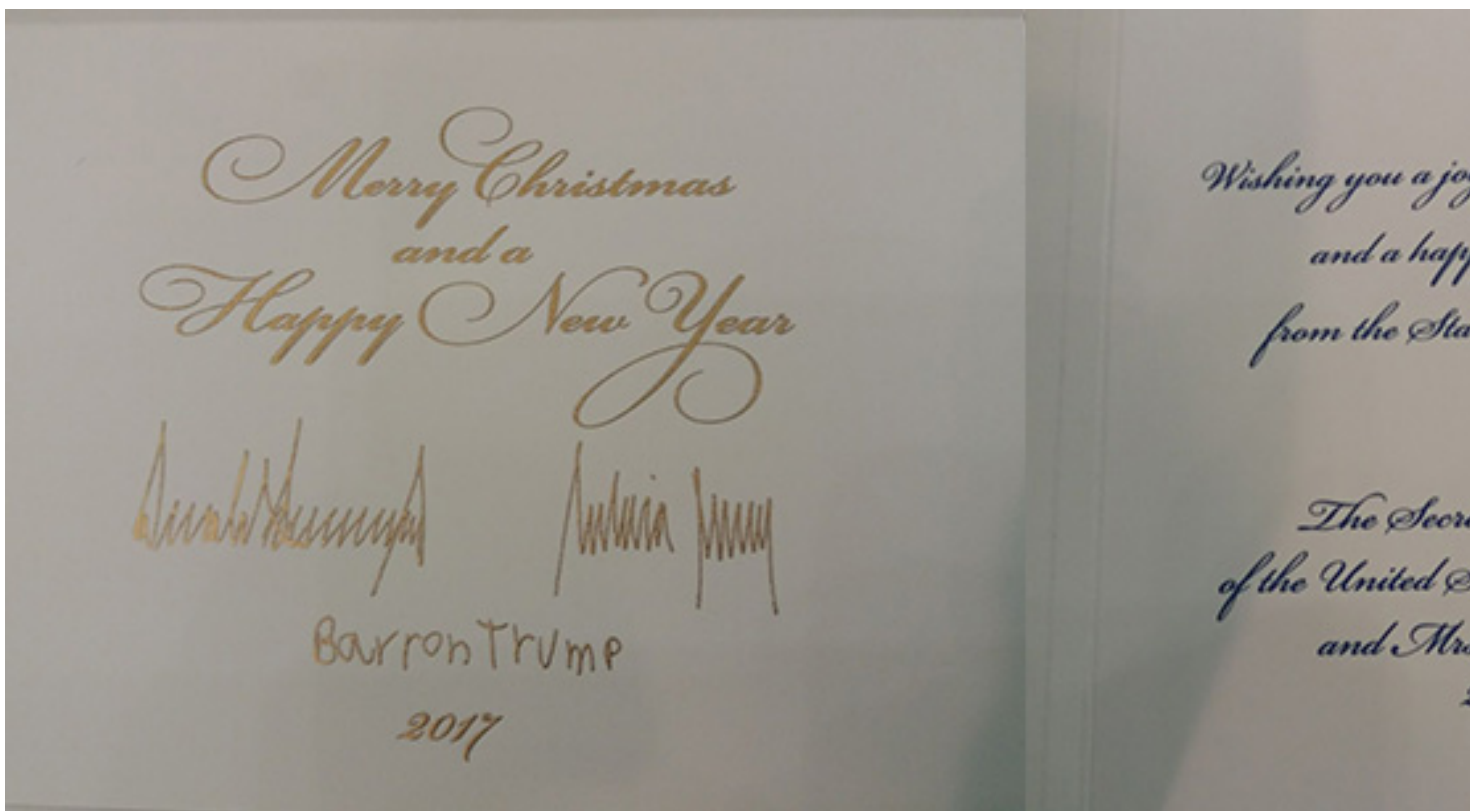 Merry Christmas
and a
Happy New Year
Barron Trump
2017
Wishing you a joy
and a happ
from the Sta
The Secre
of the United S
and Mrs